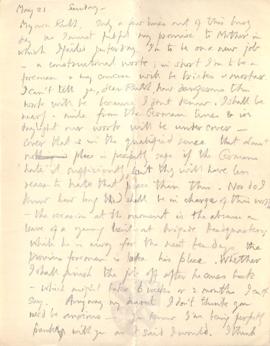 May 21 Sunday -
My own Ruth. Only a few lines out of this busy
day as I must fulfil my promise to Mother in
which I failed yesterday. I'm to be on a new job
- a constructional work; in short I'm to be a
foreman & my concern will be bricks & mortar.
I can't tell you, dear Ruth how dangerous this
work will be because I don't know. I shall be
near a mile from the German lines & in
daylight our work will be under cover -
cover that is in the qualified sense that
place is perfectly safe if the Germans
hate it sufficiently but they will have less
reason to hate that place than this. Nor do I
know how long I shall be in charge of this work
- the occasion at the moment is the absence on
leave of a young at brigade headquarters
which he is away for the next ten days. The
previous foreman is to take his place. Whether
I shall finish the job off after he comes back
- which might take 6 weeks or 2 months I can't
say. Anyway my dearest I don't think you
need be anxious - You know I'm being perfectly
frank with you as I said I would. I think